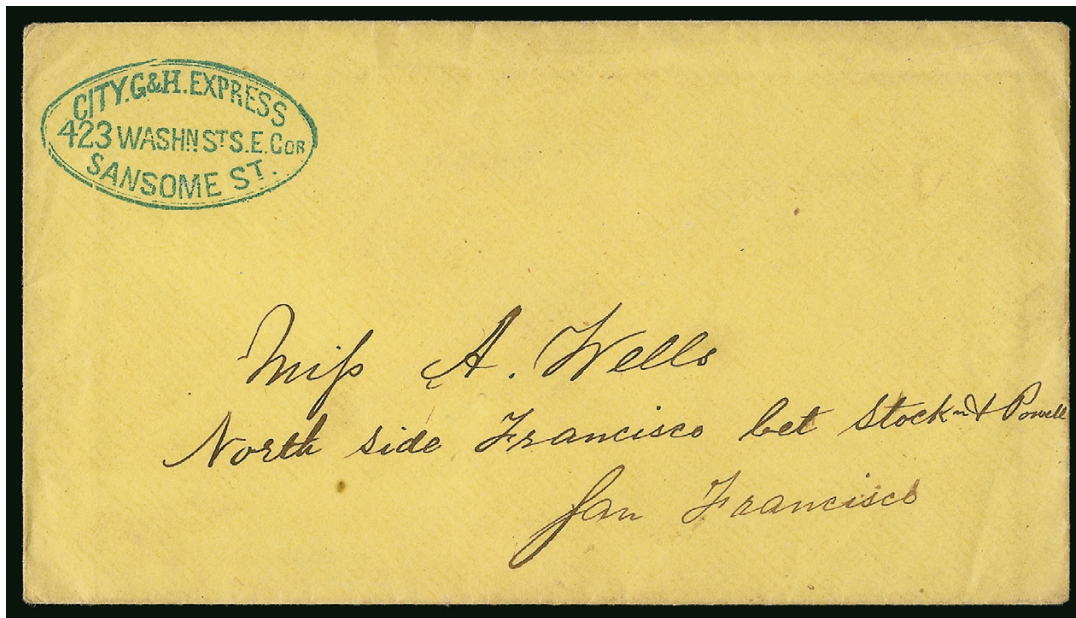 CITY.G&H.EXPRESS
423 WASHN ST S.E. COR
SANSOME ST.
Miss A. Wells
North side Francisco bet Stockn & Powell
San Francisco